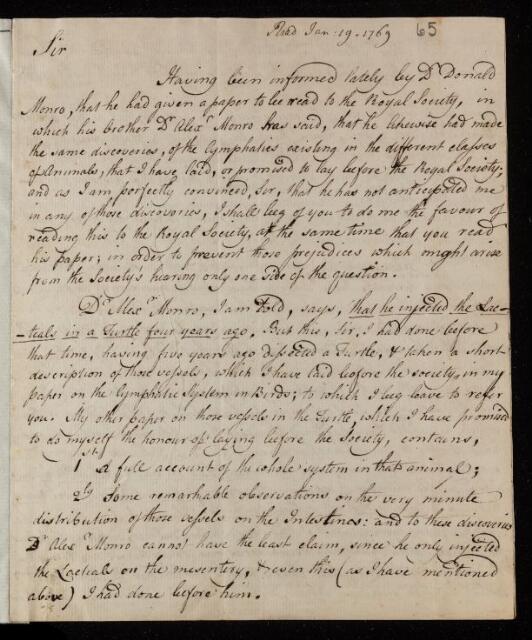 Read Jan: 19. 1769 65
Sir
Having been informed lately by Dr Donald
Monro, that he had given a paper to be read to the Royal Society, in
which his brother Dr Alexr Monro has said, that he likewise had made
the same discoveries, of the lymphatics existing in the different classes
of Animals, that I have laid, or promised to lay before the Royal Society;
and as I am perfectly convinced, Sir, that he has not anticipated me
in any of those discoveries, I shall beg of you to do me the favour of
reading this to the Royal Society, at the same time that you read
his paper; in order to prevent those prejudices which might arise
from the Society's hearing only one side of the question.
Dr Alexr Monro, I am told, says, that he injected the Lac-
-teals in a Turtle four years ago. But this, Sir, I had done before
that time, having five years ago dissected a Turtle, & taken a short
description of those vessels, which I have laid before the society, in my
paper on the Lymphatic System in Birds; to which I beg leave to refer
you. My other paper on those vessels in the Turtle, which I have promised
to do myself the honour of laying before the Society, contains,
1st A full account of the whole system in that animal;
2ly Some remarkable observations on the very minute
distribution of those vessels on the Intestines: and to these discoveries
Dr Alexr Monro cannot have the least claim, since he only injected
the Lacteals on the mesentery, & even this (as I have mentioned
above) I had done before him.